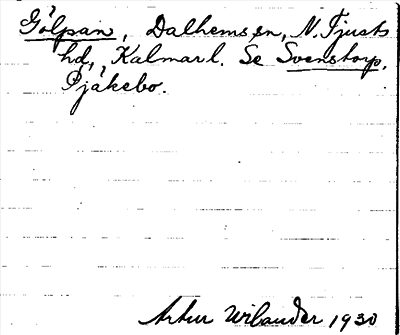 Gölpan, Dalhems sn, N. Tjusts
hd, Kalmar l. Se Svenstorp,
Pjäkebo.
Artur Wilander 1930